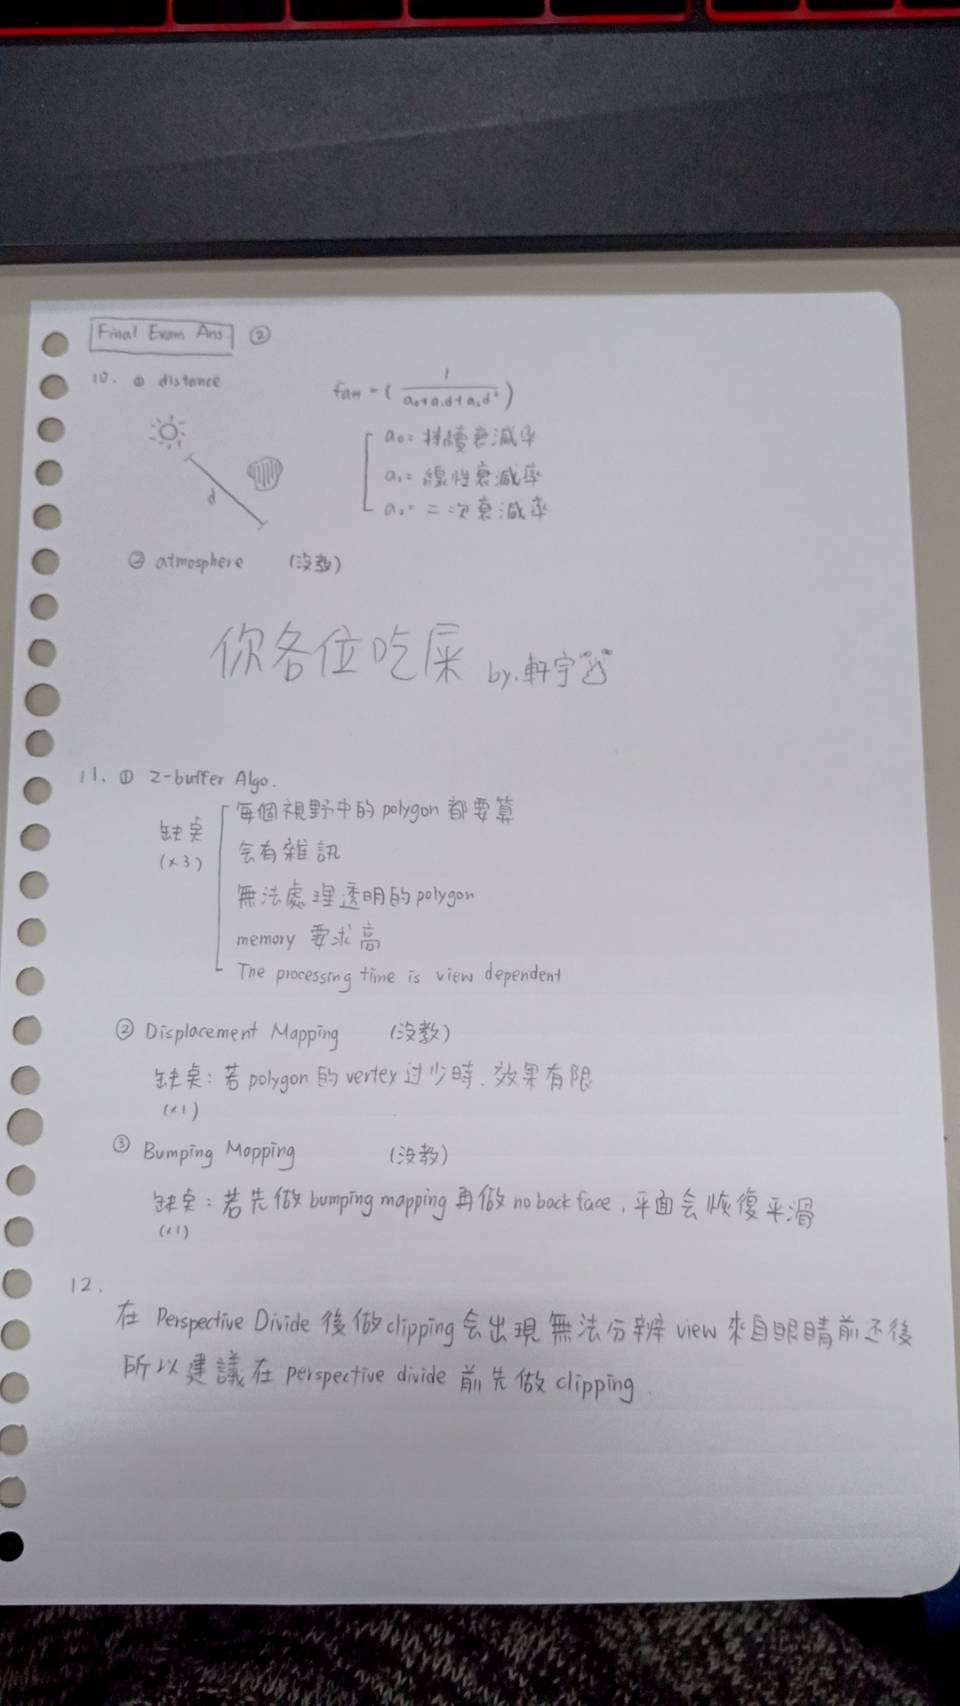 Final Exam Ans. ②
10. ① distance
fatt = ( 1 / a₀+a₁d+a₂d² )
d
a₀: 持續衰減率
a₁: 線性衰減率
a₂: 二次衰減率
② atmosphere (沒教)
你各位吃屎 by.軒宇
11. ① Z-buffer Algo.
缺点
(x3)
每個視野中的polygon都要算
会有雜訊
無法處理透明的polygon
memory 要求高
The processing time is view dependent
② Displacement Mapping (沒教)
缺点: 若polygon的vertex过少時、效果有限
(x1)
③ Bumping Mapping (沒教)
缺点: 若先做bumping mapping再做no back face, 平面会恢復平滑
(x1)
12.
在 Perspective Divide 後做clipping会出現無法分辨view來自眼睛前还後
所以建議在 perspective divide 前先做 clipping